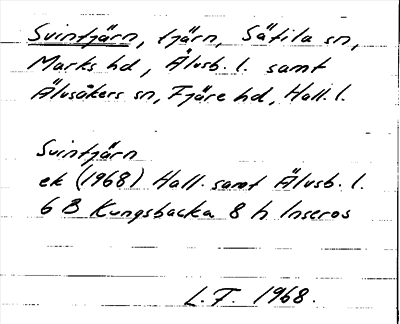 Svintjärn, tjärn, Sätila sn,
Marks hd, Älvsb. l. samt
Älvsåkers sn, Fjäre hd, Hall. l.
Svintjärn
ek (1968) Hall. samt Älvsb. l.
6 B Kungsbacka 8 h Inseros
L.F. 1968.